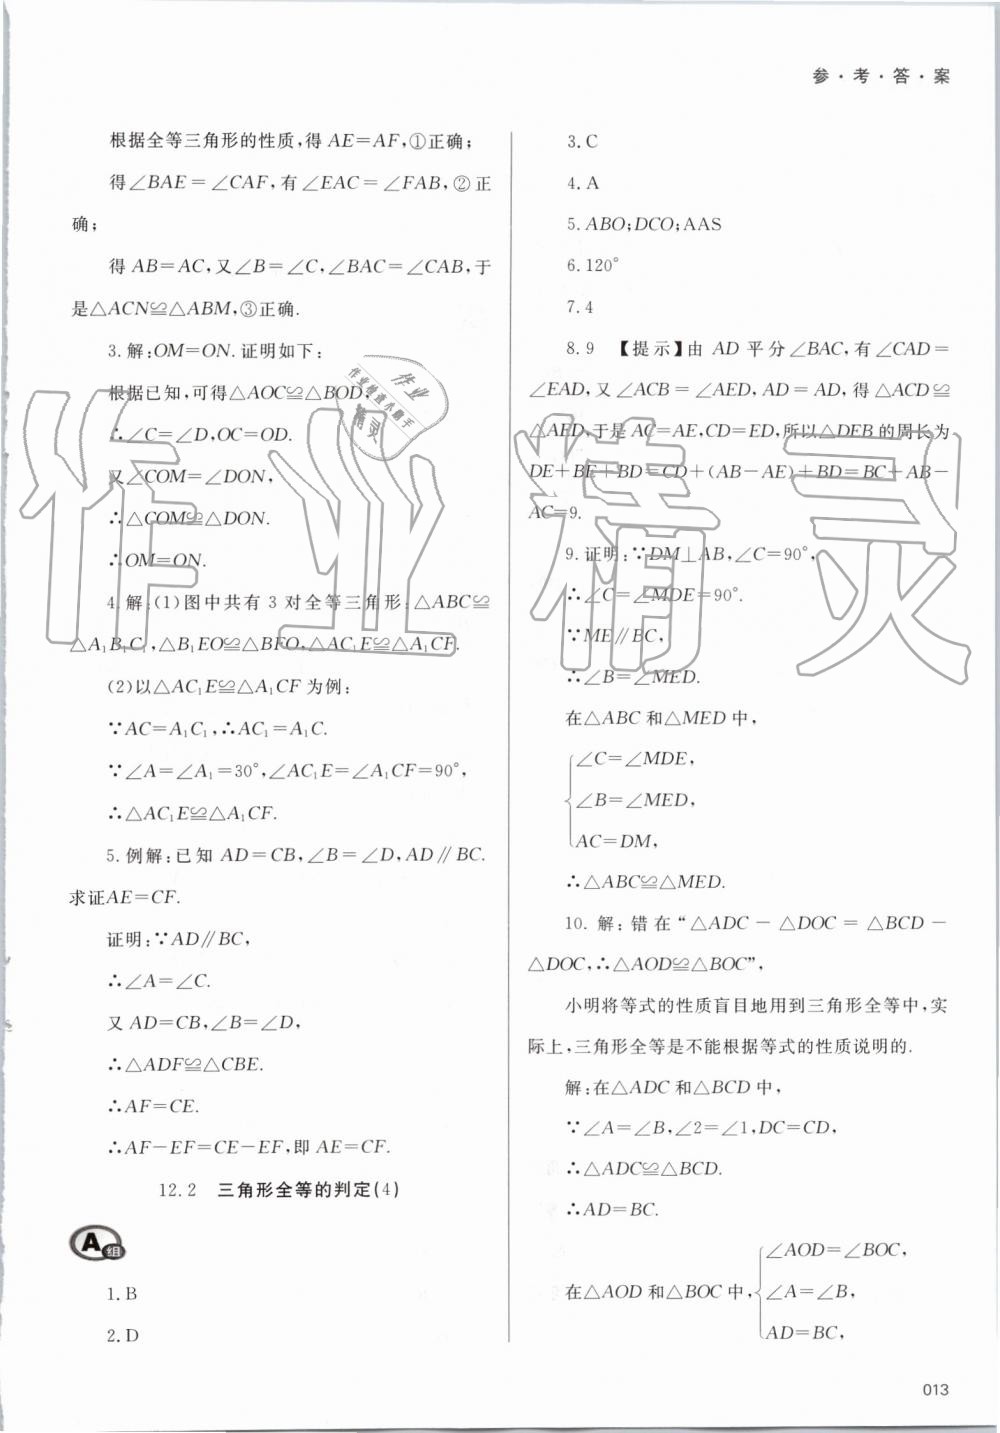 参·考·答·案
根据全等三角形的性质,得 AE=AF,①正确;
得∠BAE=∠CAF,有∠EAC=∠FAB,②正
确;
得 AB=AC,又∠B=∠C,∠BAC=∠CAB,于
是△ACN≌△ABM,③正确.
3.解:OM=ON.证明如下:
根据已知,可得△AOC≌△BOD,
∴∠C=∠D,OC=OD.
又∠COM=∠DON,
∴△COM≌△DON.
∴OM=ON.
4.解:(1)图中共有 3 对全等三角形:△ABC≌
△A₁B₁C₁,△B₁EO≌△BFO,△AC₁E≌△A₁CF.
(2)以△AC₁E≌△A₁CF 为例:
∵AC=A₁C₁,∴AC₁=A₁C.
∵∠A=∠A₁=30°,∠AC₁E=∠A₁CF=90°,
∴△AC₁E≌△A₁CF.
5.例解:已知 AD=CB,∠B=∠D,AD∥BC.
求证AE=CF.
证明:∵AD∥BC,
∴∠A=∠C.
又 AD=CB,∠B=∠D,
∴△ADF≌△CBE.
∴AF=CE.
∴AF-EF=CE-EF,即 AE=CF.
12.2 三角形全等的判定(4)
A组
1.B
2.D
3.C
4.A
5.ABO;DCO;AAS
6.120°
7.4
8.9 【提示】由 AD 平分∠BAC,有∠CAD=
∠EAD,又∠ACB=∠AED,AD=AD,得△ACD≌
△AED,于是 AC=AE,CD=ED,所以△DEB 的周长为
DE+BE+BD=CD+(AB-AE)+BD=BC+AB-
AC=9.
9.证明:∵DM⊥AB,∠C=90°,
∴∠C=∠MDE=90°.
∵ME∥BC,
∴∠B=∠MED.
在△ABC 和△MED 中,
∠C=∠MDE,
∠B=∠MED,
AC=DM,
∴△ABC≌△MED.
10.解:错在“△ADC-△DOC=△BCD-
△DOC,∴△AOD≌△BOC”,
小明将等式的性质盲目地用到三角形全等中,实
际上,三角形全等是不能根据等式的性质说明的.
解:在△ADC 和△BCD 中,
∵∠A=∠B,∠2=∠1,DC=CD,
∴△ADC≌△BCD.
∴AD=BC.
∠AOD=∠BOC,
在△AOD 和△BOC 中,∠A=∠B,
AD=BC,
013
作业精灵
作业
作业检查小助手
精灵